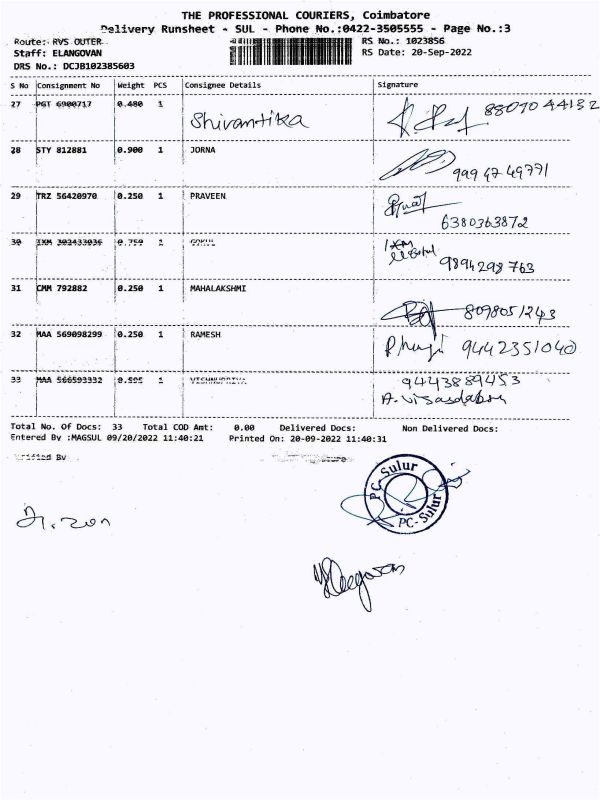 THE PROFESSIONAL COURIERS, Coimbatore
Delivery Runsheet - SUL - Phone No.:0422-3505555 - Page No.:3
Route: RVS OUTER
RS No.: 1023856
Staff: ELANGOVAN
RS Date: 20-Sep-2022
DRS No.: DCJB102385603
S No Consignment No Weight PCS Consignee Details Signature
27 PGT 6900717 0.480 1 Shivantika 8807044132
28 STY 812881 0.900 1 JORNA 9994749771
29 TRZ 56420970 0.250 1 PRAVEEN
6380363872
30 IXM 302433036 0.750 1 GOKUL IXM
9894298763
31 CMM 792882 0.250 1 MAHALAKSHMI 8098051243
32 MAA 569098299 0.250 1 RAMESH 9442351040
33 MAA 566593332 0.595 1 VISHNUPRIYA 9443889453
Total No. Of Docs: 33 Total COD Amt: 0.00 Delivered Docs: Non Delivered Docs:
Entered By :MAGSUL 09/20/2022 11:40:21 Printed On: 20-09-2022 11:40:31
Verified By
PC-Sulur
PC-Sulur